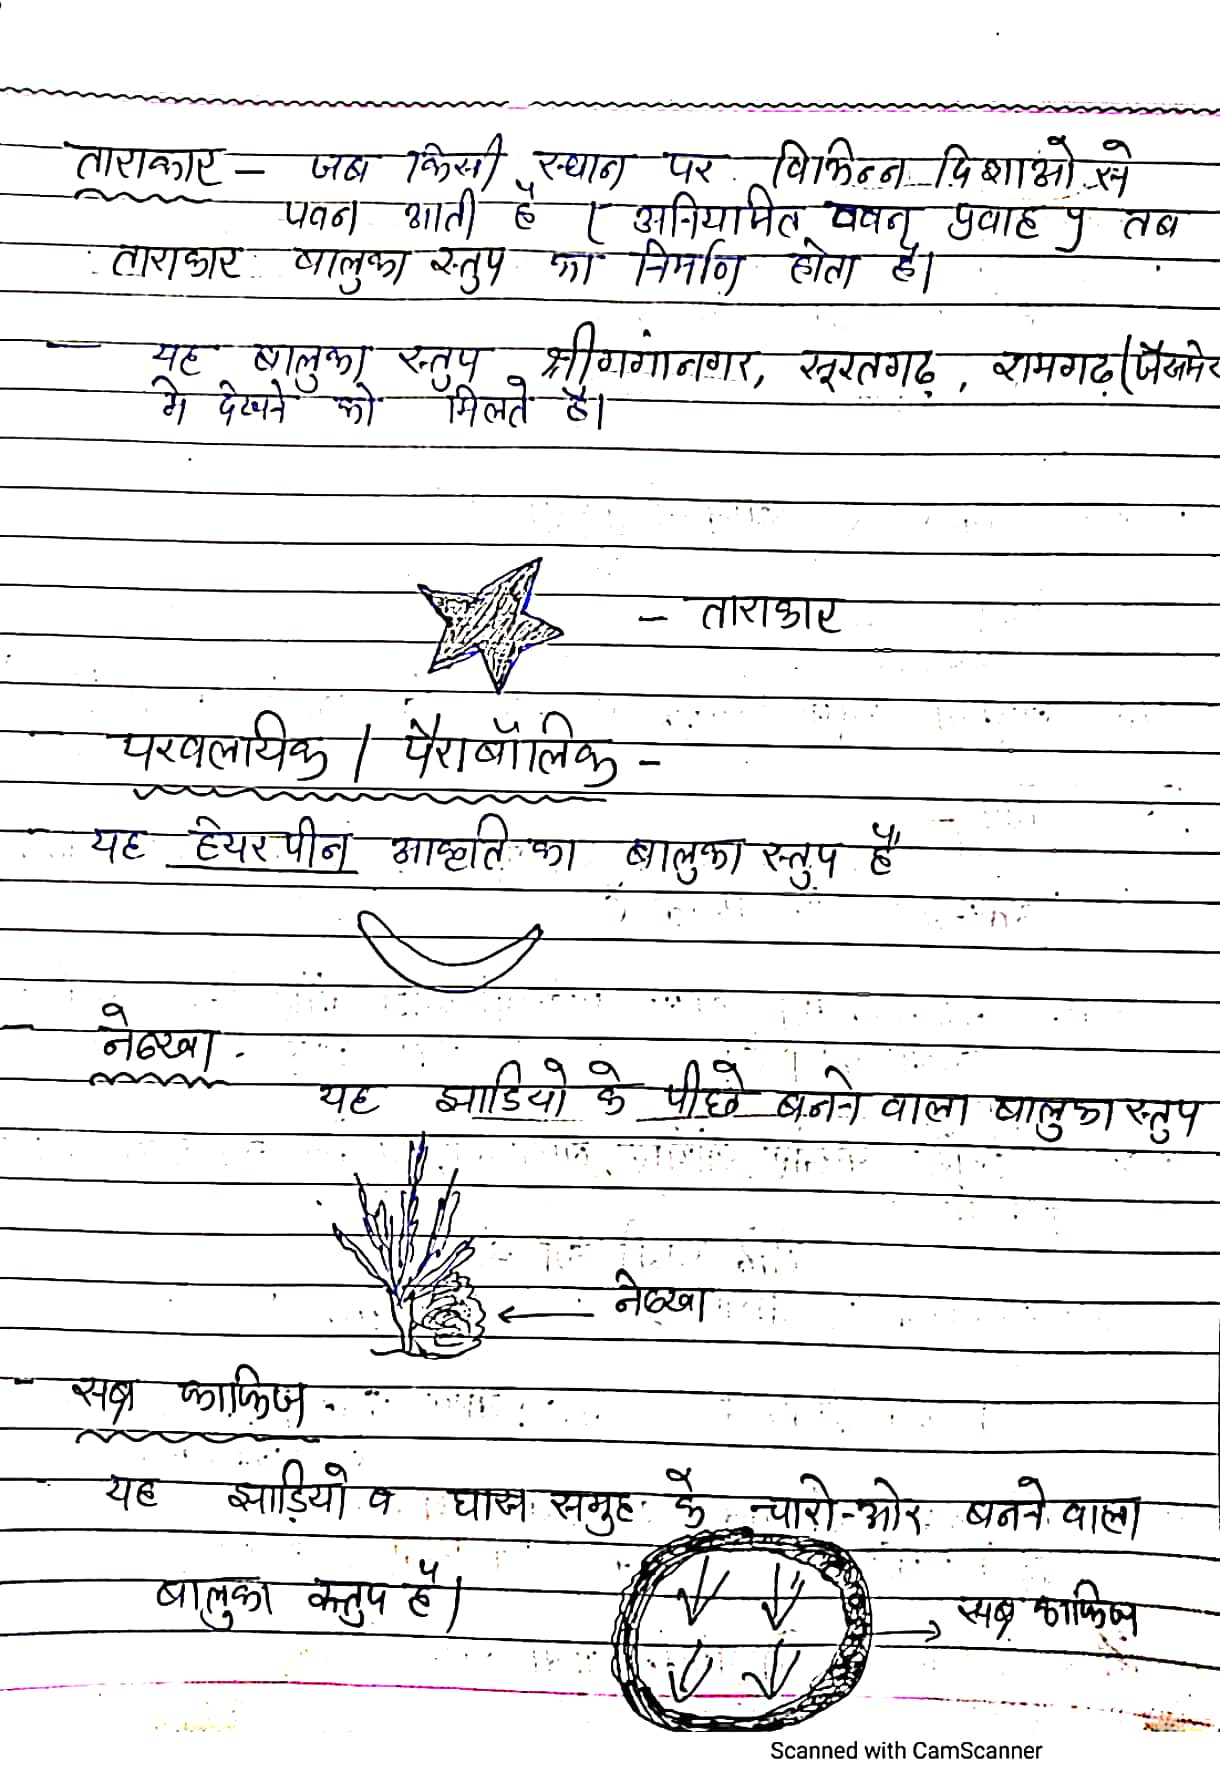 ताराकार – जब किसी स्थान पर विभिन्न दिशाओ से
पवन आती है ( अनियामित पवन प्रवाह ) तब
ताराकार बालुका स्तुप का निर्माण होता है।
– यह बालुका स्तुप श्रीगगांनगर, सूरतगढ़, रामगढ़ (जैसमेर
मे देखने को मिलते है।
– ताराकार
– परवलायिक / पैराबॉलिक –
– यह हेयरपीन आकृति का बालुका स्तुप है
– नेब्खा
यह झाडियो के पीछे बनने वाला बालुका स्तुप
नेब्खा
– सब्र काफिज
यह झाड़ियो व घास समुह के चारो-ओर बनने वाला
बालुका स्तुप है।
सब्र काफिज
Scanned with CamScanner